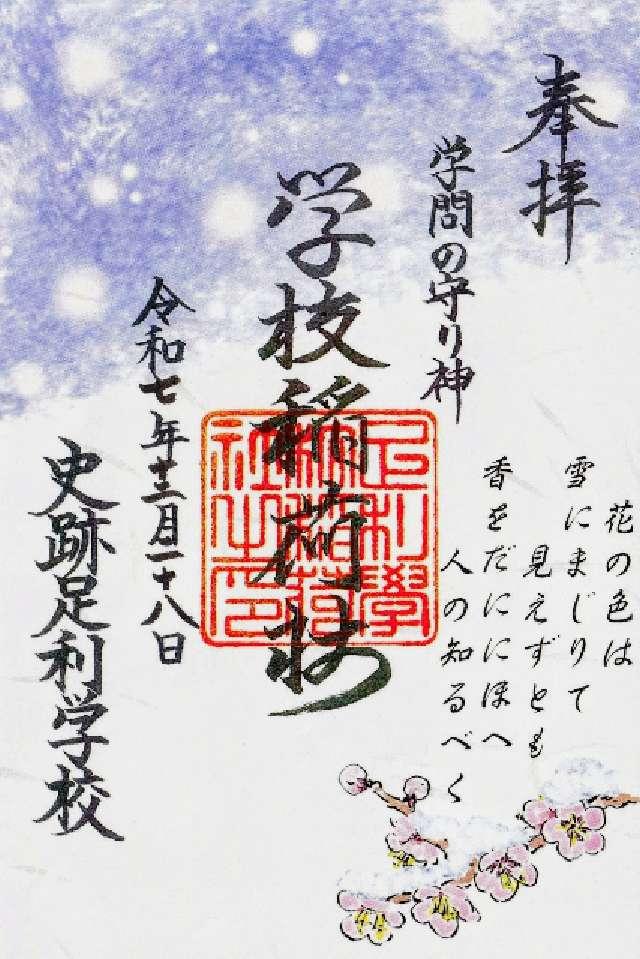 奉拝
学問の守り神
花の色は
雪にまじりて
見えずとも
香をだににほへ
人の知るべく
学校稲荷社
令和七年十二月二十八日
史跡足利学校